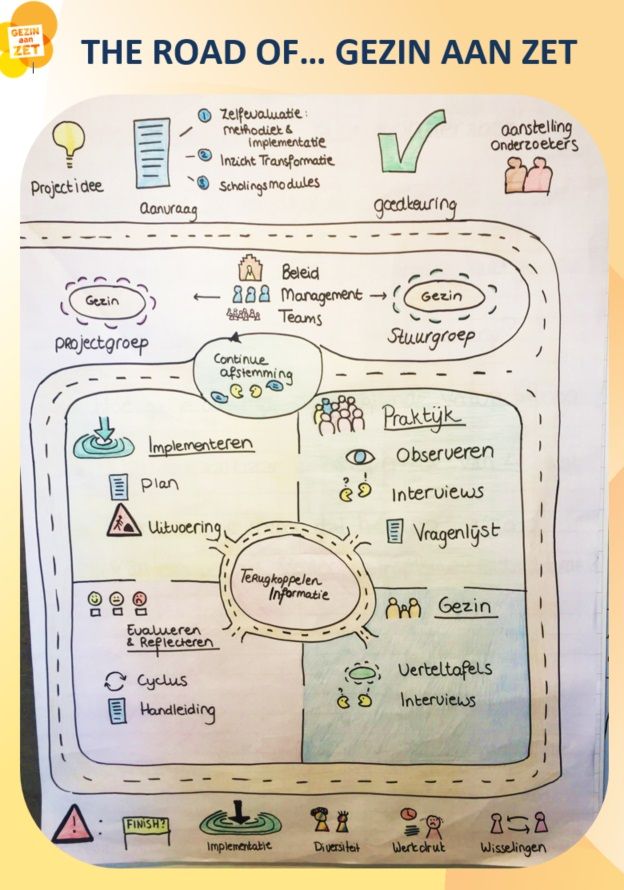 GEZIN
aan
ZET
THE ROAD OF... GEZIN AAN ZET
Projectidee
Aanvraag
1 Zelfevaluatie:
methodiek &
implementatie
2 Inzicht Transformatie
3 Scholingsmodules
goedkeuring
aanstelling
onderzoekers
Gezin
projectgroep
Beleid
Management
Teams
Gezin
Stuurgroep
Continue
afstemming
Implementeren
Plan
Uitvoering
Praktijk
Observeren
Interviews
Vragenlijst
Terugkoppelen
Informatie
Evalueren
& Reflecteren
Cyclus
Handleiding
Gezin
Verteltafels
Interviews
! :
FINISH?
Implementatie
Diversiteit
Werkdruk
Wisselingen